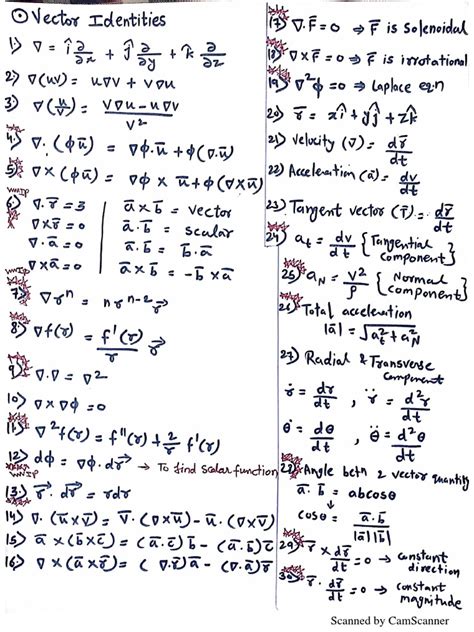 ⊙ Vector Identities
1) ∇ = î ∂/∂x + ĵ ∂/∂y + k̂ ∂/∂z
2) ∇(uv) = u∇v + v∇u
3) ∇(u/v) = (v∇u - u∇v)/v²
4) ∇·(φū) = ∇φ·ū + φ(∇·ū)
5) ∇×(φū) = ∇φ × ū + φ(∇×ū)
vvvimp
6) ∇·r̄ = 3
∇×r̄ = 0
∇·ā = 0
∇×ā = 0
ā×b̄ = vector
ā·b̄ = scalar
ā·b̄ = b̄·ā
ā×b̄ = -b̄×ā
vvvimp
7) ∇rⁿ = n rⁿ⁻² r⃗
8) ∇f(r) = f'(r)/r r⃗
9) ∇·∇ = ∇²
10) ∇×∇φ = 0
11) ∇²f(r) = f''(r) + 2/r f'(r)
12) dφ = ∇φ·dr⃗ → To find scalar function
vvvimp
13) r⃗·dr⃗ = rdr
14) ∇·(ū×v̄) = v̄·(∇×ū) - ū·(∇×v̄)
15) ā×(b̄×c̄) = (ā·c̄)b̄ - (ā·b̄)c̄
16) ∇×(ā×r̄) = (∇·r̄)ā - (∇·ā)r̄
17) ∇·F̄ = 0 ⇒ F̄ is solenoidal
18) ∇×F̄ = 0 ⇒ F̄ is irrotational
19) ∇²φ = 0 ⇒ Laplace eqn
20) r̄ = xî + yĵ + zk̂
21) Velocity (v̄) = dr̄/dt
22) Acceleration (ā) = dv̄/dt
23) Tangent vector (T̄) = dr̄/dt
24) aₜ = dv/dt {Tangential component}
25) a_N = v²/ρ {Normal component}
26) Total acceleration
|ā| = √(aₜ² + a_N²)
27) Radial & Transverse
Component
ṙ = dr/dt , r̈ = d²r/dt
θ̇ = dθ/dt , θ̈ = d²θ/dt
28) Angle betn 2 vector quantity
ā·b̄ = abcosθ
↓
cosθ = ā·b̄/|ā||b̄|
29) r̄ × dr̄/dt = 0 → constant direction
30) r̄ · dr̄/dt = 0 → constant magnitude
Scanned by CamScanner